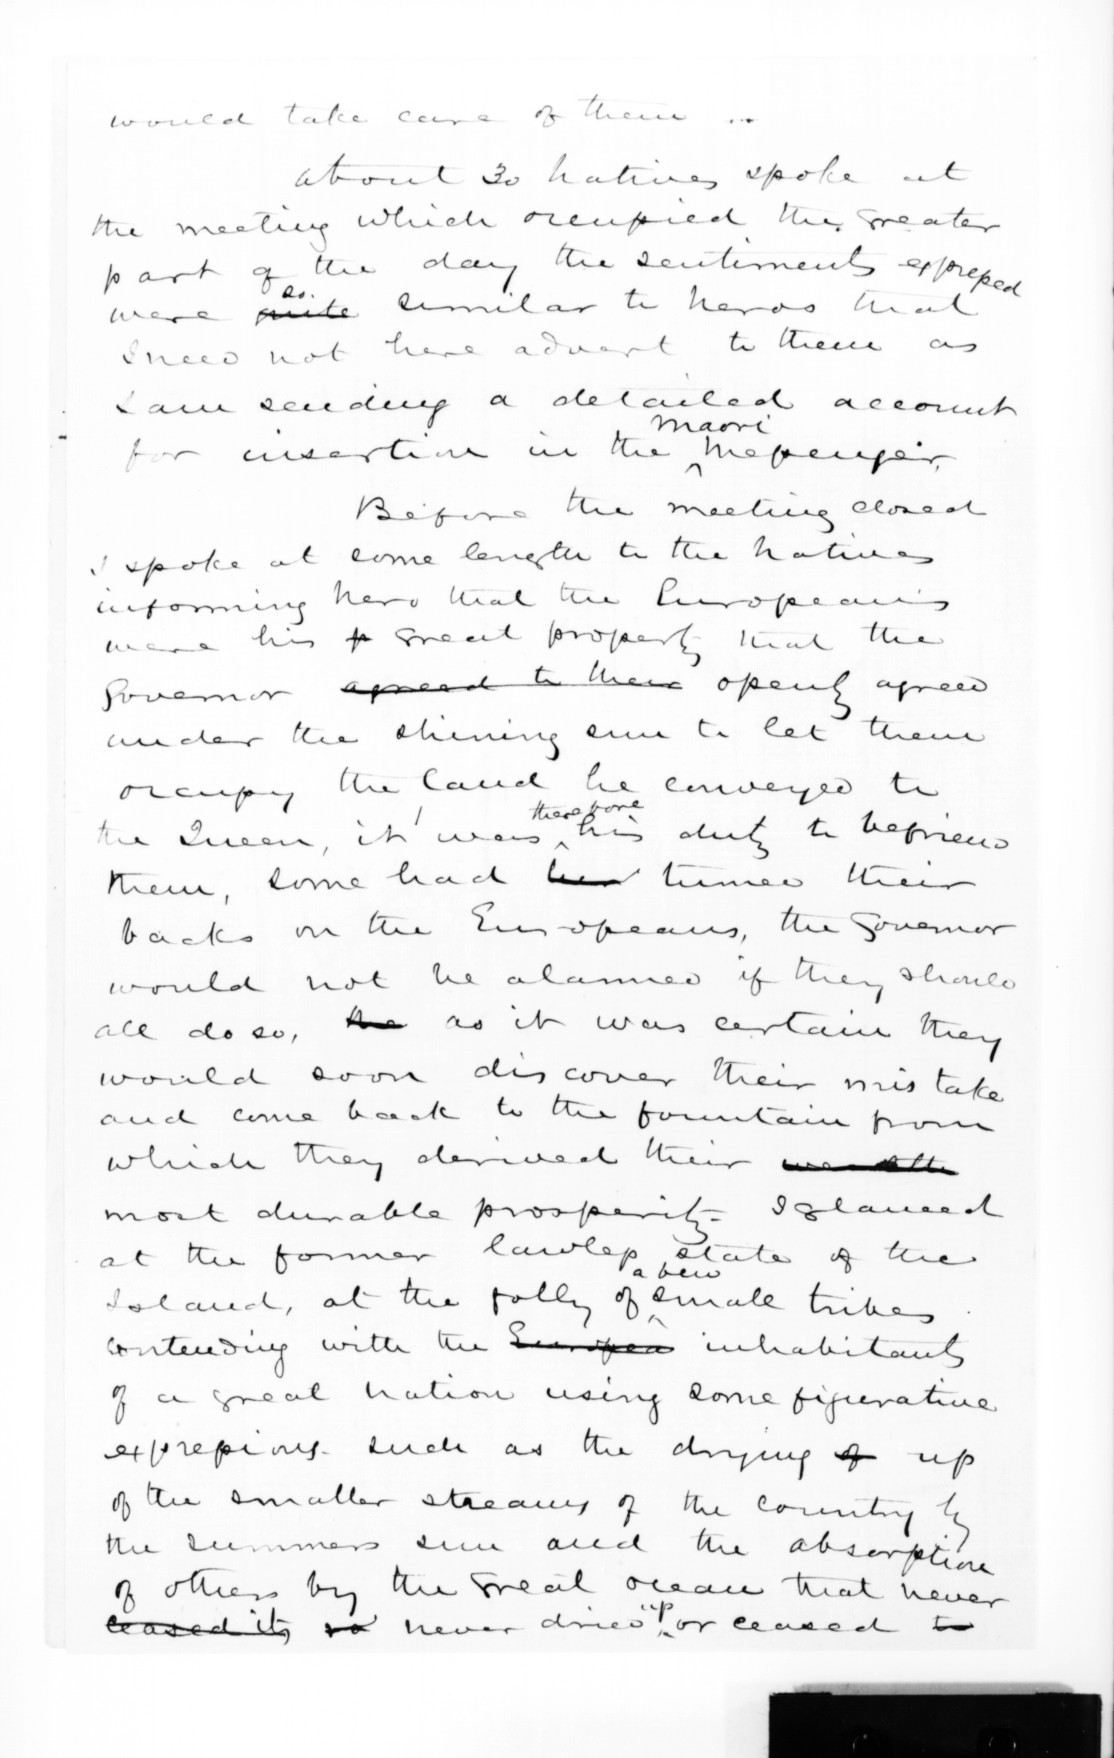 would take care of them ...
About 30 natives spoke at
the meeting which occupied the greater
part of the day the sentiments expressed
were quite so similar to heros that
I need not here advert to them as
I am sending a detailed account
for insertion in the Maori Messenger.
Before the meeting closed
I spoke at some length to the natives
informing hero that the Europeans
were his p great property that the
Governor agreed to their openly agreed
under the shining sun to let them
occupy the land he conveyed to
the Queen, it was therefore his duty to befriend
them, some had turned their
backs on the Europeans, the Governor
would not be alarmed if they should
all do so, the as it was certain they
would soon discover their mistake
and come back to the fountain from
which they derived their wealth
most durable prosperity. I glanced
at the former lawless state of the
Island, at the folly of a few small tribes
contending with the Europea inhabitants
of a great nation using some figurative
expressions such as the drying of up
of the smaller streams of the country by
the summers sun and the absorption
of others by the great ocean that never
ceased its so never dried up or ceased to